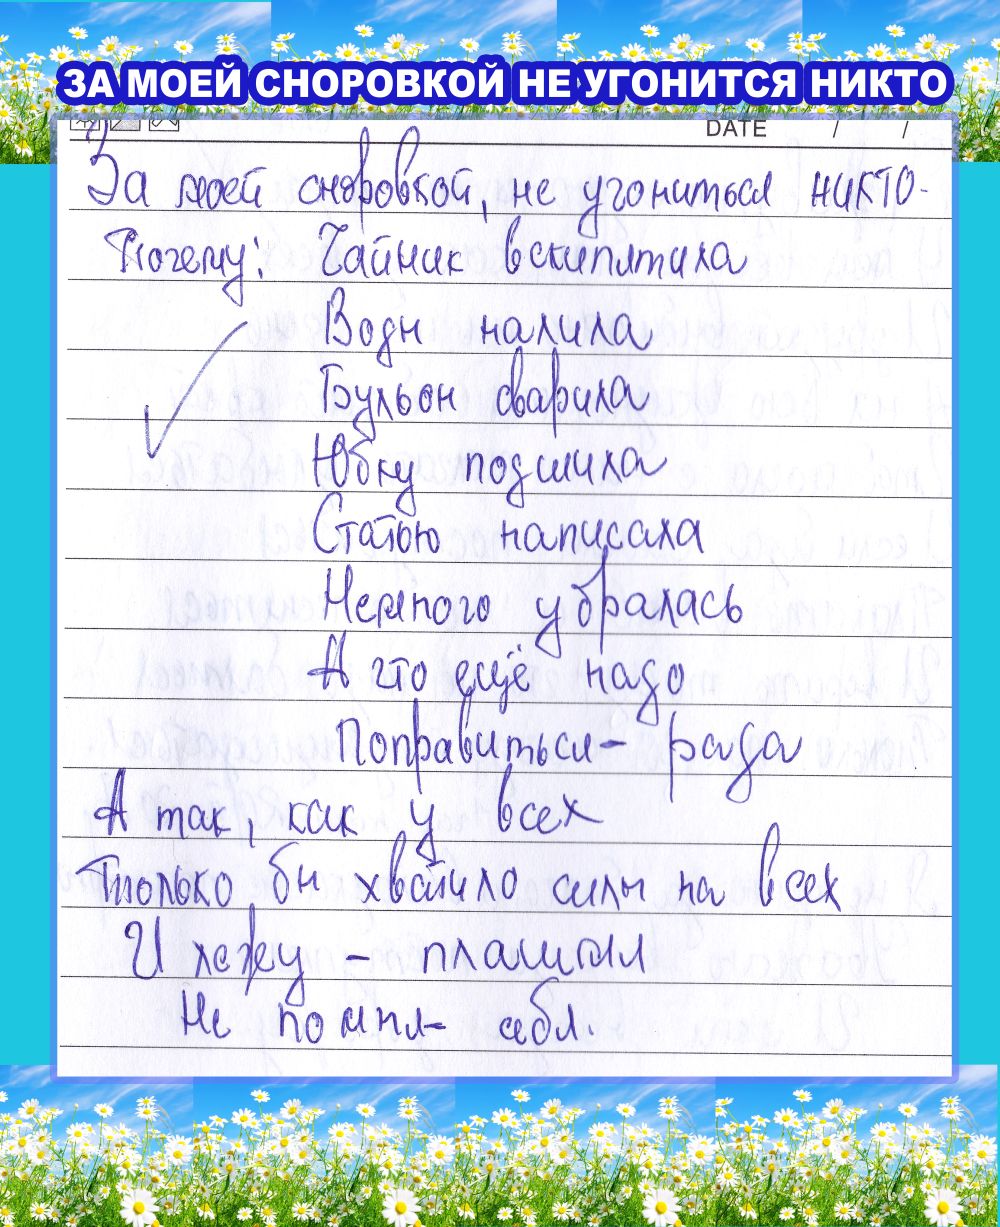 ЗА МОЕЙ СНОРОВКОЙ НЕ УГОНИТСЯ НИКТО
DATE / /
За моей сноровкой, не угониться никто-
Почему: Чайник вскипятила
Воды налила
Бульон сварила
Юбку подшила
Статью написала
Немного убралась
А что ещё надо
Поправиться- рада
А так, как у всех
Только бы хватило силы на всех
И лежу - пластая
Не помня- себя.